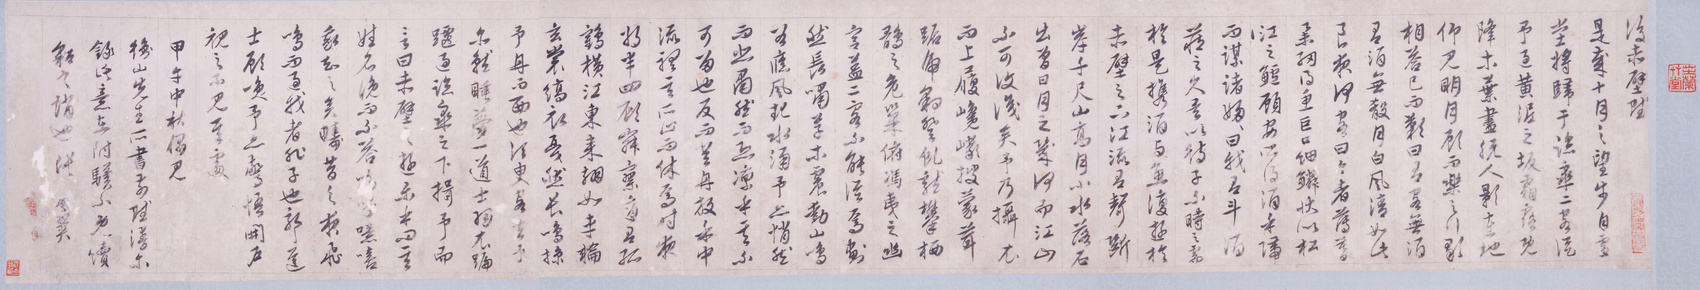 後赤壁賦
是歲十月之望步自雪
堂將歸于臨皋二客從
予過黃泥之坂霜露既
降木葉盡脫人影在地
仰見明月顧而樂之行歌
相答已而歎曰有客無酒
有酒無殽月白風清如此
良夜何客曰今者薄暮
舉網得魚巨口細鱗狀似松
江之鱸顧安所得酒乎歸
而謀諸婦婦曰我有斗酒
藏之久矣以待子不時之需
於是攜酒與魚復遊於
赤壁之下江流有聲斷
岸千尺山高月小水落石
出曾日月之幾何而江山
不可復識矣予乃攝衣
而上履巉巖披蒙茸
踞虎豹登虬龍攀栖
鶻之危巢俯馮夷之幽
宮蓋二客不能從焉劃
然長嘯草木震動山鳴
谷應風起水涌予亦悄然
而悲肅然而恐凜乎其不
可留也反而登舟放乎中
流聽其所止而休焉時夜
將半四顧寂寥適有孤
鶴橫江東來翅如車輪
玄裳縞衣戛然長鳴掠
予舟而西也須臾客去予
亦就睡夢一道士羽衣蹁
躚過臨皋之下揖予而
言曰赤壁之遊樂乎問其
姓名俛而不答嗚呼噫嘻
我知之矣疇昔之夜飛
鳴而過我者非子也耶道
士顧笑予亦驚悟開戶
視之不見其處
甲午中秋偶見
衡山先生所書前賦漫尔
錄此意在附驥不免續
貂之誚也